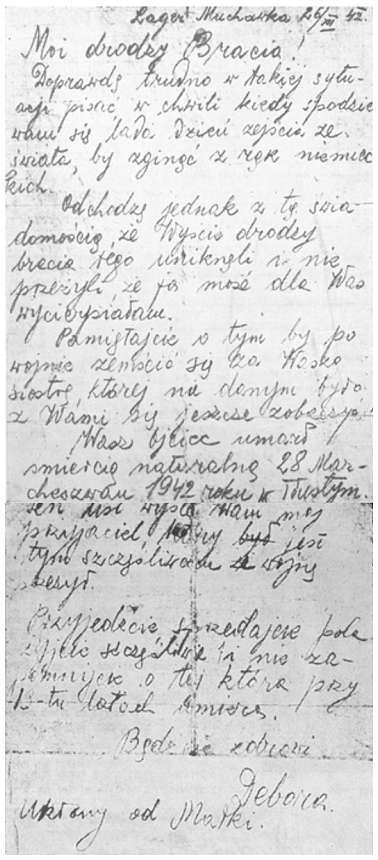 Lager Mucharka 26/III 42.
Moi drodzy Bracia!
Doprawdę trudno w takiej sytu-
acji pisać w chwili kiedy spodzie
wam się lada dzień zejścia ze
świata, by zginąć z rąk niemiec
kich.
Odchodzę jednak z tą świa-
domością, że Wyście drodzy
bracia tego uniknęli i nie
przeżyli że ja może dla Was
wycierpiałam.
Pamiętajcie o tym by po
wojnie zemścić się za Waszą
siostrę, której nie danym było
z Wami się jeszcze zobaczyć
Wasz ojciec umarł
śmiercią naturalną 28 Mar-
cheszwan 1942 roku w Tłustym.
wam mój
przyjaciel który był jest
tym szczęśliwcem że wojnę
przeżył.
Przyjedźcie sprzedajcie pole
żyjcie szczęśliwie i nie za-
pomnijcie o tej która przy
latach umiera.
Bądźcie zdrowi
Debora.
Ukłony od Matki.